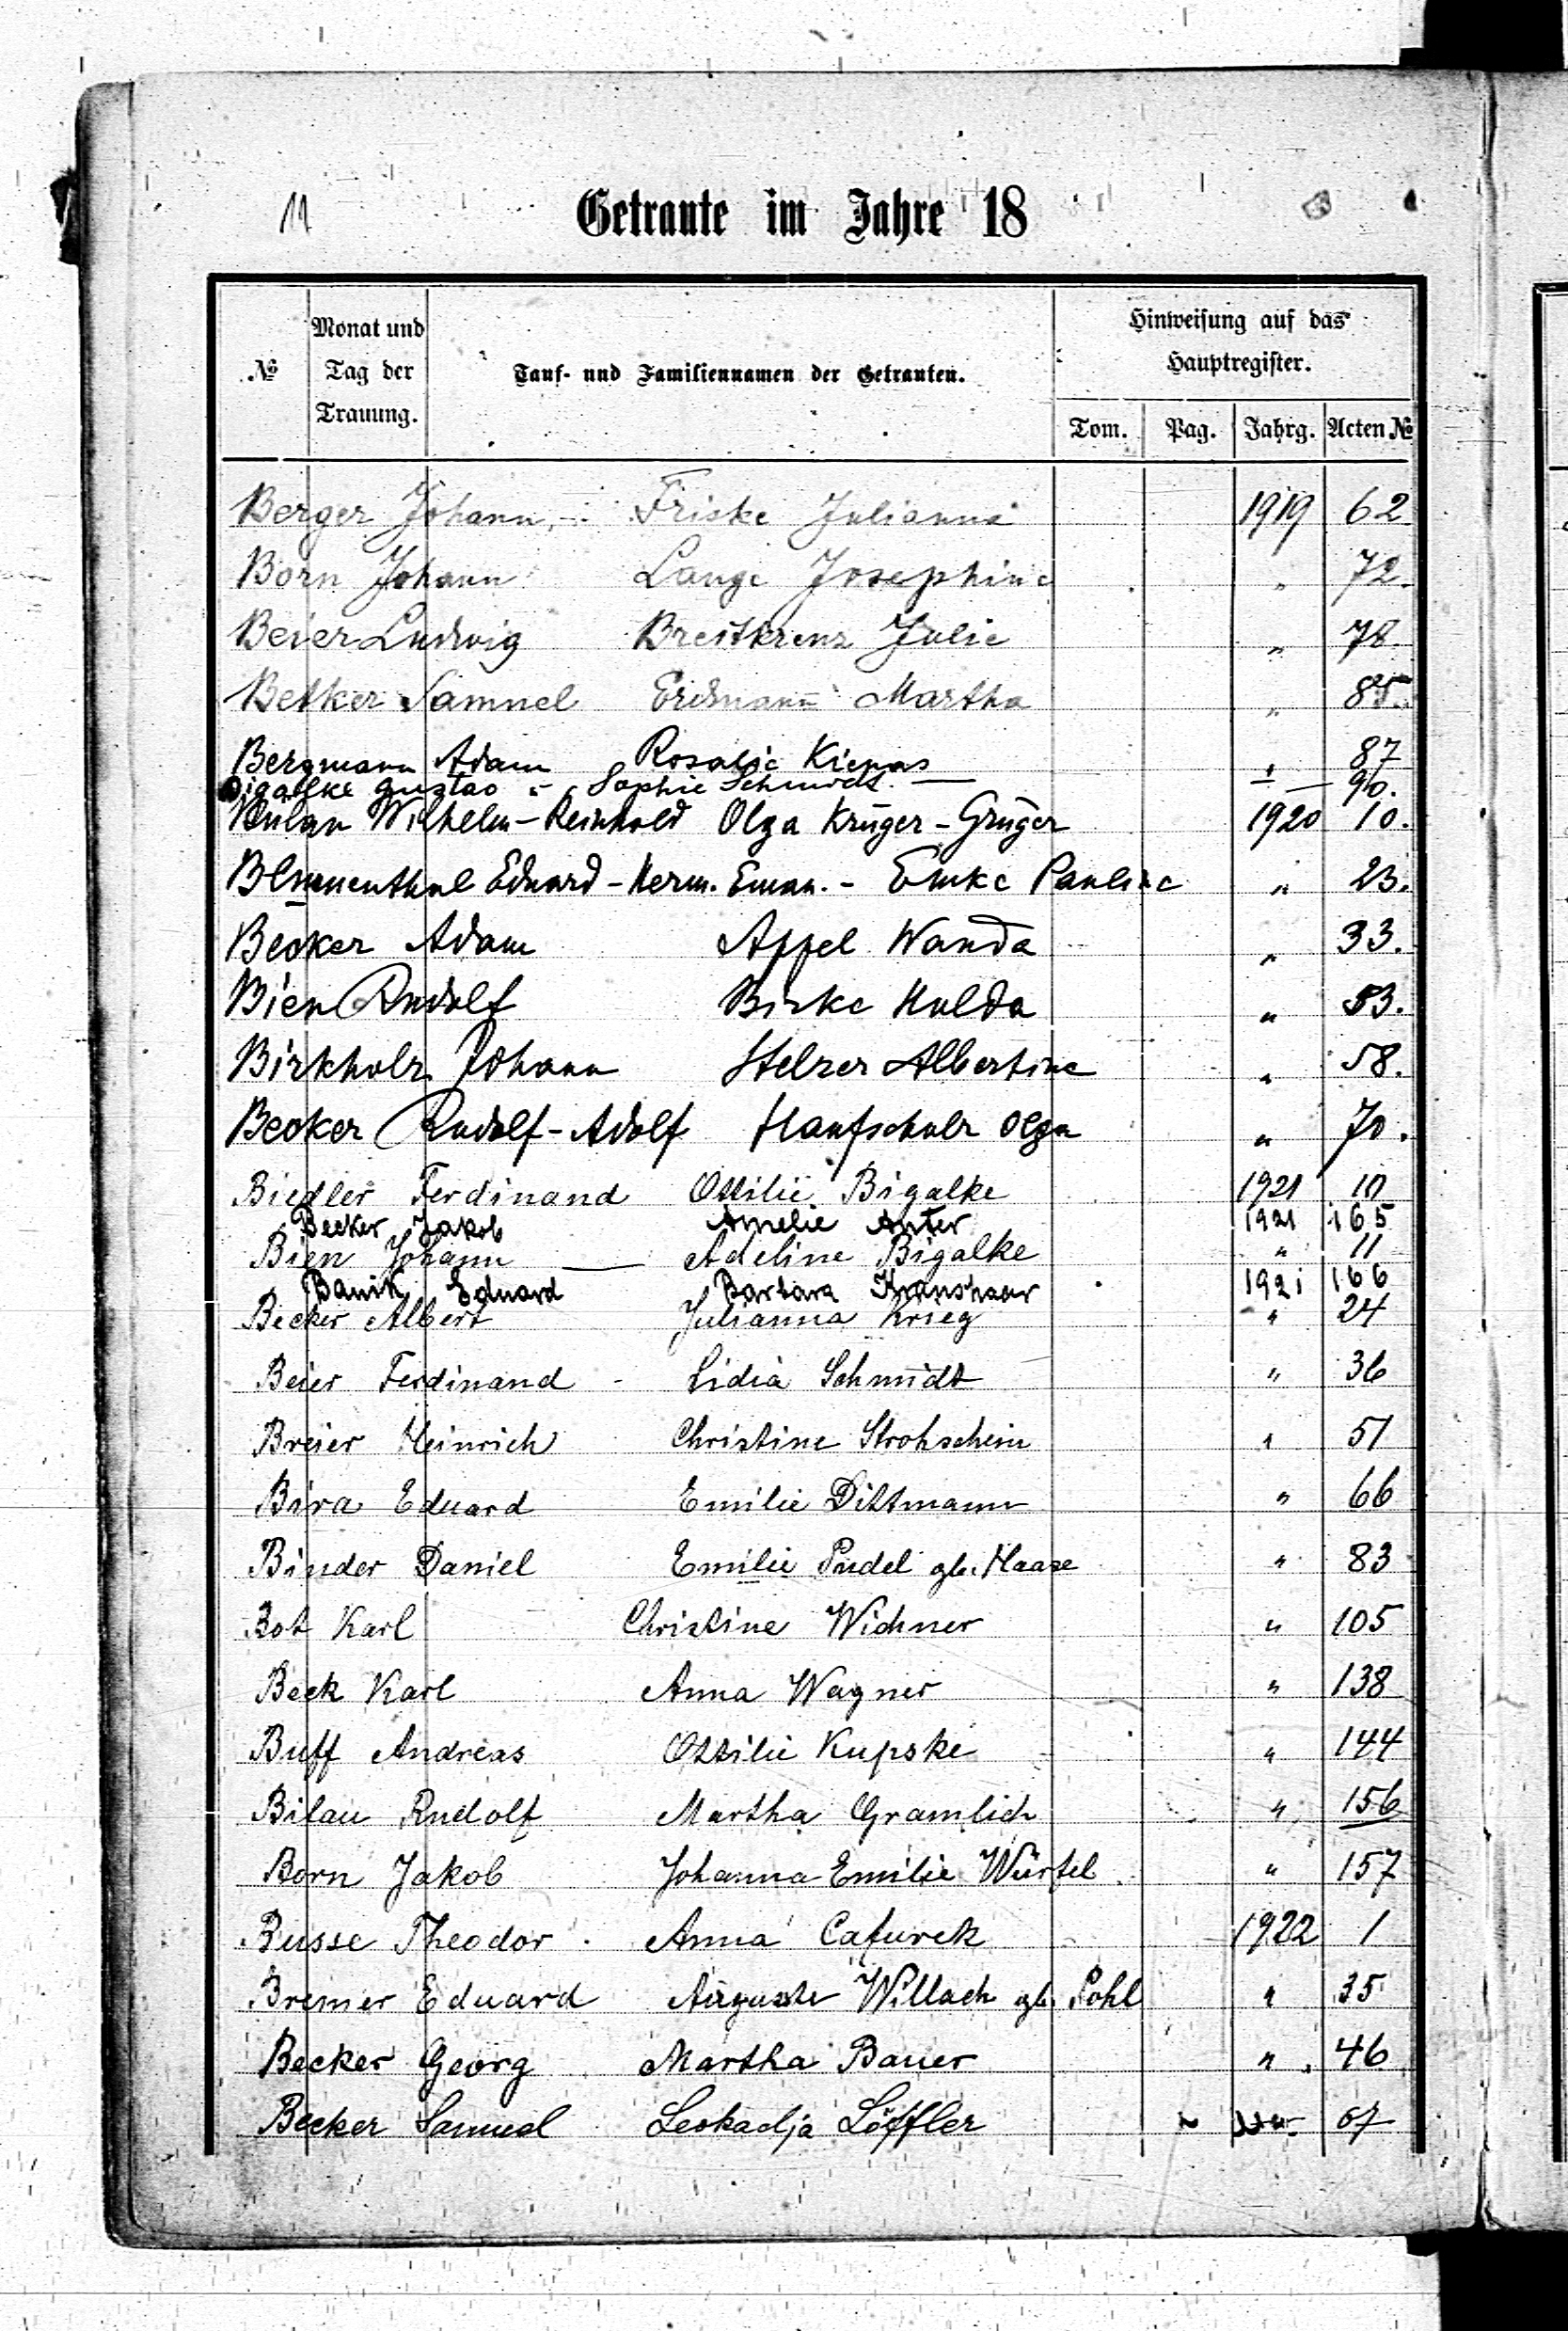 11
Getraute im Jahre 18
№ Monat und Tag der Trauung. Tauf- und Familiennamen der Getrauten. Hinweisung auf das Hauptregister.
Tom. Pag. Jahrg. Acten №
Berger Johann, - Friske Julianna 1919 62
Born Johann Lange Josephine " 72.
Beier Ludwig Breitkrenz Julie " 78
Betker Samuel Erdmann Martha " 85.
Bergmann Adam Rosalie Kienas " 87
Bigalke Gustav - Sophie Schmidt — 90.
Wilhelm-Reinhold Olga Krüger-Grüger 1920 10.
Blumenthal Eduard-Herm. Eman. - Emke Pauline " 23.
Becker Adam Appel Wanda " 33.
Bien Rudolf Birke Hulda " 53.
Birkholz Johann Stelzer Albertine " 58.
Becker Rudolf-Adolf Haufschulz Olga " 70.
Biedler Ferdinand Ottilie Bigalke 1921 10
Becker Jakob Amelie Anter 1921 165
Bien Johann — Adeline Bigalke " 11
Banik Eduard Barbara 1921 166
Becker Albert Julianna Krieg " 24
Beier Ferdinand - Lidia Schmidt " 36
Breier Heinrich Christine Strohschein " 51
Bira Eduard Emilie Dittmann " 66
Binder Daniel Emilie Pudel gb. Haase " 83
Bot Karl Christine Wichner " 105
Beck Karl Anna Wagner " 138
Buff Andreas Ottilie Kupske " 144
Bilau Rudolf Martha Gramlich " 156
Born Jakob Johanna Emilie Würfel " 157
Busse Theodor Anna Cafurek 1922 1
Bremer Eduard Auguste Willach gb. Pohl " 35
Becker Georg Martha Bauer " 46
Becker Samuel Leokadja Löffler